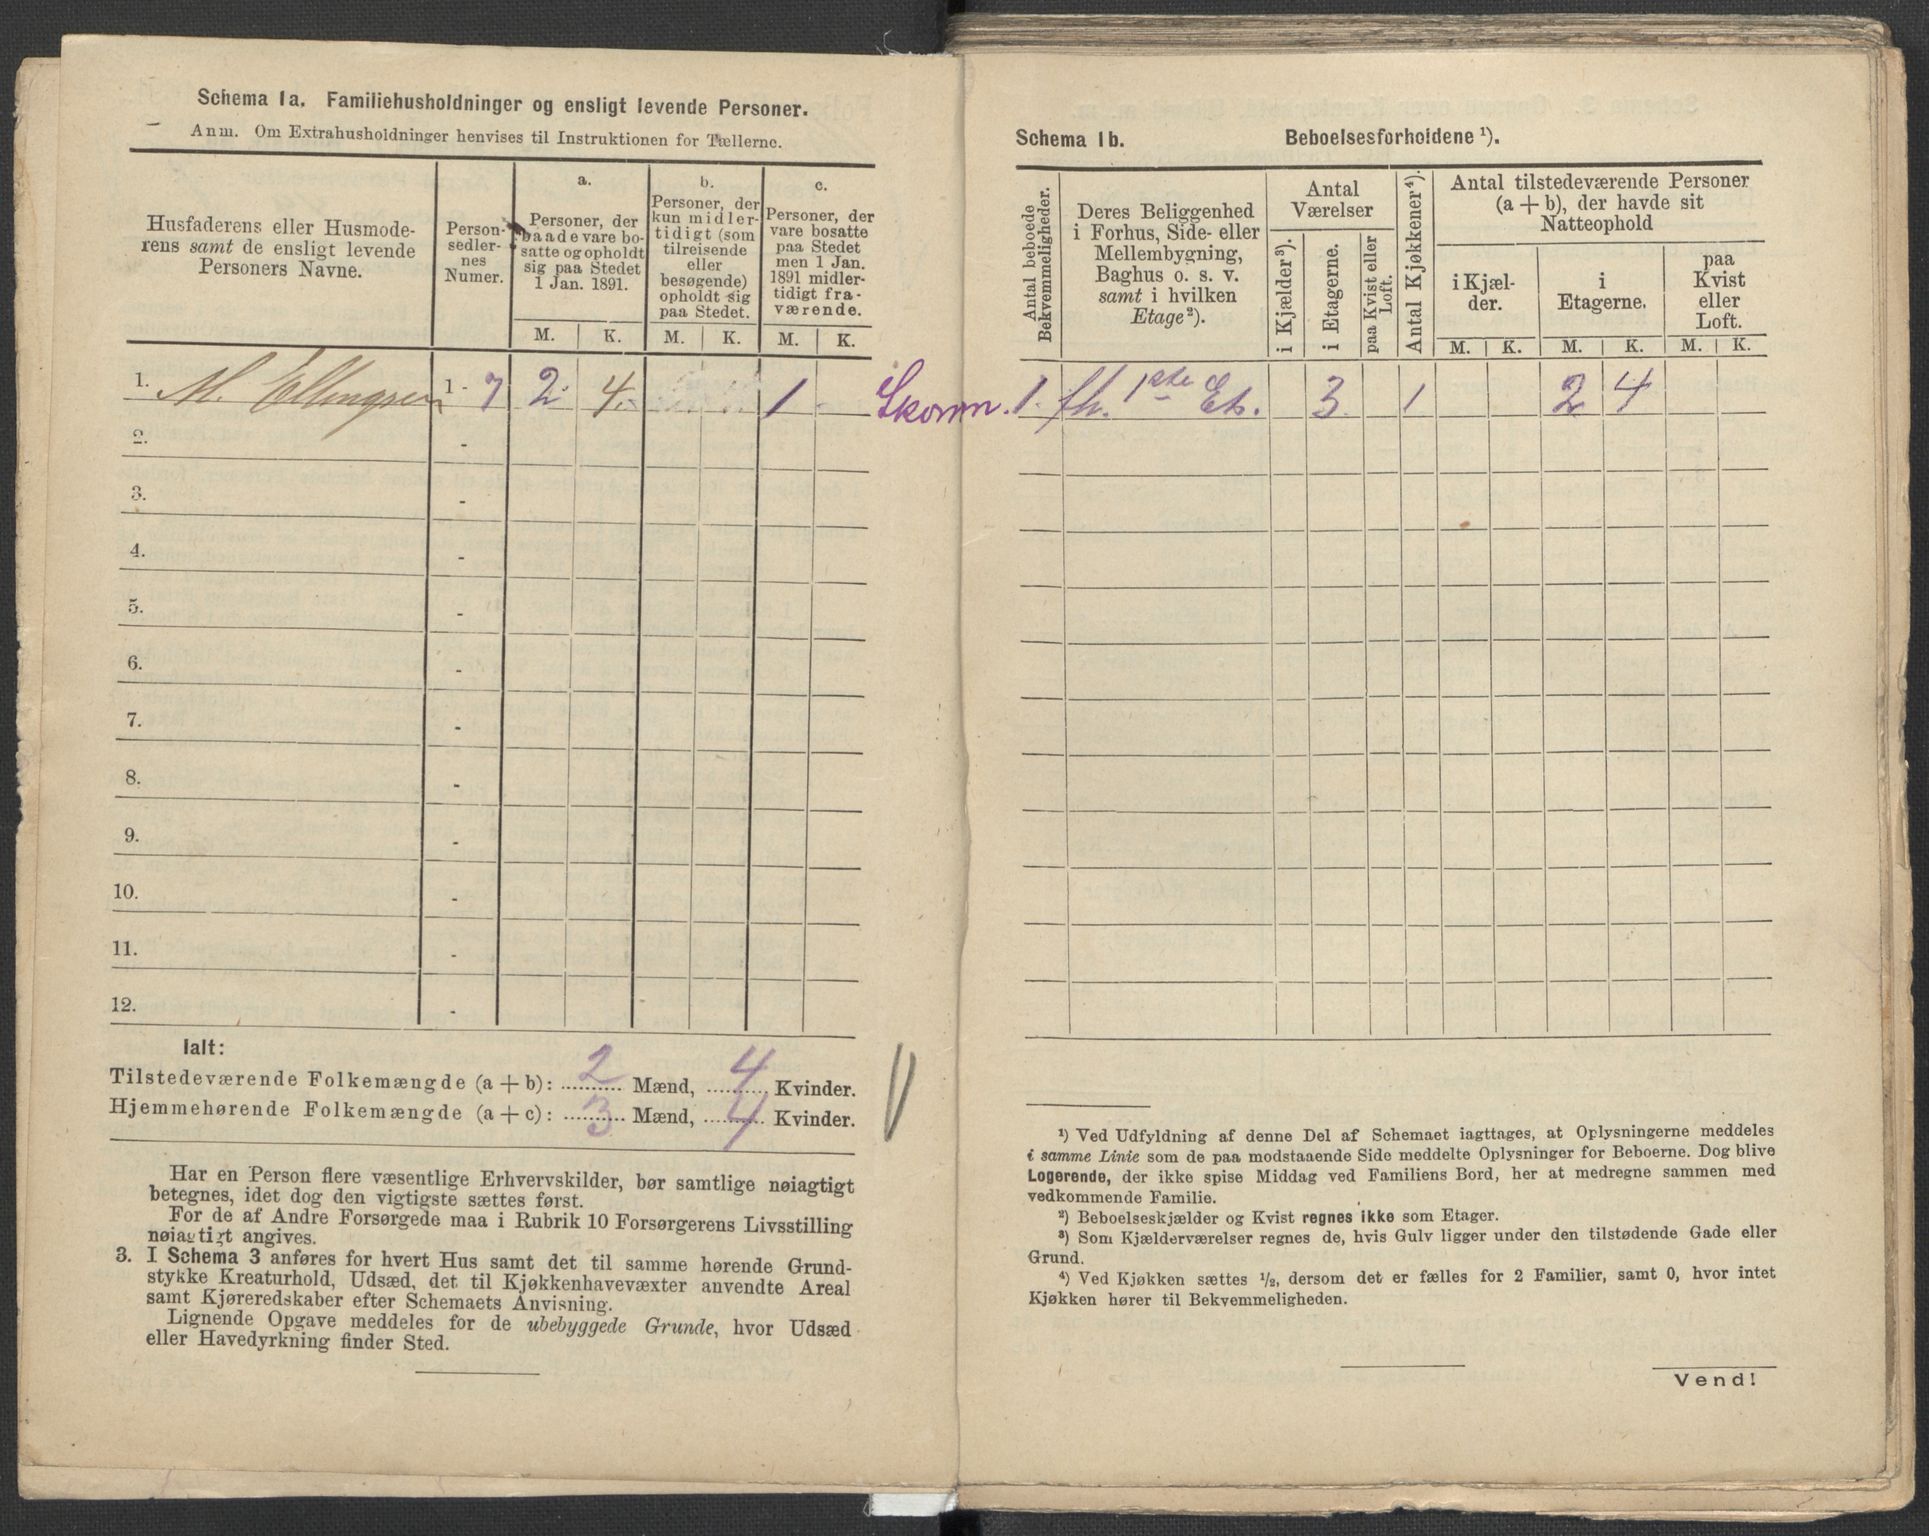 Schema 1a. Familiehusholdninger og ensligt levende Personer.
Anm. Om Extrahusholdninger henvises til Instruktionen for Tællerne.
Husfaderens eller Husmode-
rens samt de ensligt levende
Personers Navne.
Person-
sedler-
nes
Numer.
a.
Personer, der
baade vare bo-
satte og opholdt
sig paa Stedet
1 Jan. 1891.
b.
Personer, der
kun midler-
tidigt (som
tilreisende
eller
besøgende)
opholdt sig
paa Stedet.
c.
Personer, der
vare bosatte
paa Stedet
men 1 Jan.
1891 midler-
tidigt fra-
værende.
M. K. M. K. M. K.
1. M. Ellingsen 1 - 7 2 4 1 Skom.
2. -
3. -
4. -
5. -
6. -
7. -
8. -
9. -
10. -
11. -
12. -
Ialt:
Tilstedeværende Folkemængde (a + b): 2 Mænd, 4 Kvinder.
Hjemmehørende Folkemængde (a + c): 3 Mænd, 4 Kvinder.
Har en Person flere væsentlige Erhvervskilder, bør samtlige nøiagtigt
betegnes, idet dog den vigtigste sættes først.
For de af Andre Forsørgede maa i Rubrik 10 Forsørgerens Livsstilling
nøiagtigt angives.
3. I Schema 3 anføres for hvert Hus samt det til samme hørende Grund-
stykke Kreaturhold, Udsæd, det til Kjøkkenhavevæxter anvendte Areal
samt Kjøreredskaber efter Schemaets Anvisning.
Lignende Opgave meddeles for de ubebyggede Grunde, hvor Udsæd
eller Havedyrkning finder Sted.
Schema 1b. Beboelsesforholdene ¹).
Antal beboede
Bekvemmeligheder.
Deres Beliggenhed
i Forhus, Side- eller
Mellembygning,
Baghus o. s. v.
samt i hvilken
Etage²).
Antal
Værelser
i Kjælder³).
i Etagerne.
paa Kvist eller
Loft.
Antal Kjøkkener⁴).
Antal tilstedeværende Personer
(a + b), der havde sit
Natteophold
i Kjæl-
der.
i
Etagerne.
paa
Kvist
eller
Loft.
M. K. M. K. M. K.
1. fh. 1ste Et. 3 1 2 4
¹) Ved Udfyldning af denne Del af Schemaet iagttages, at Oplysningerne meddeles
i samme Linie som de paa modstaaende Side meddelte Oplysninger for Beboerne. Dog blive
Logerende, der ikke spise Middag ved Familiens Bord, her at medregne sammen med
vedkommende Familie.
²) Beboelseskjælder og Kvist regnes ikke som Etager.
³) Som Kjælderværelser regnes de, hvis Gulv ligger under den tilstødende Gade eller
Grund.
⁴) Ved Kjøkken sættes ½, dersom det er fælles for 2 Familier, samt 0, hvor intet
Kjøkken hører til Bekvemmeligheden.
Vend!